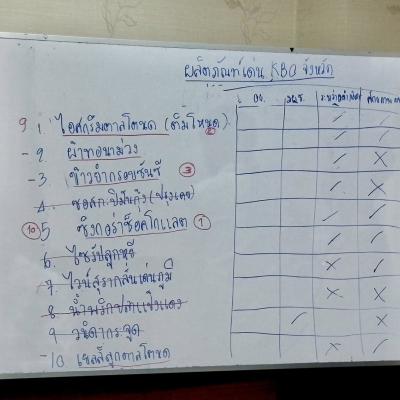 ผลิตภัณฑ์เด่น KBO จังหวัด
อย. มผช.
9 1. ไอศกรีมตาลโตนด (ต้มโหนด)
-2. ผ้าทอนาม่วง
-3 ข้าวยำกรอบซันซี 3
4.
10 5 ซิงกอร่าช็อคโกแลต 1
6. ไซรัปลูกหยี
7. ไวน์สุรากลั่นเด่นภูมิ
8 น้ำพริกปลาแป้งแดง
9 วนิดากระจูด
-10 เยลลี่ลูกตาลโตนด